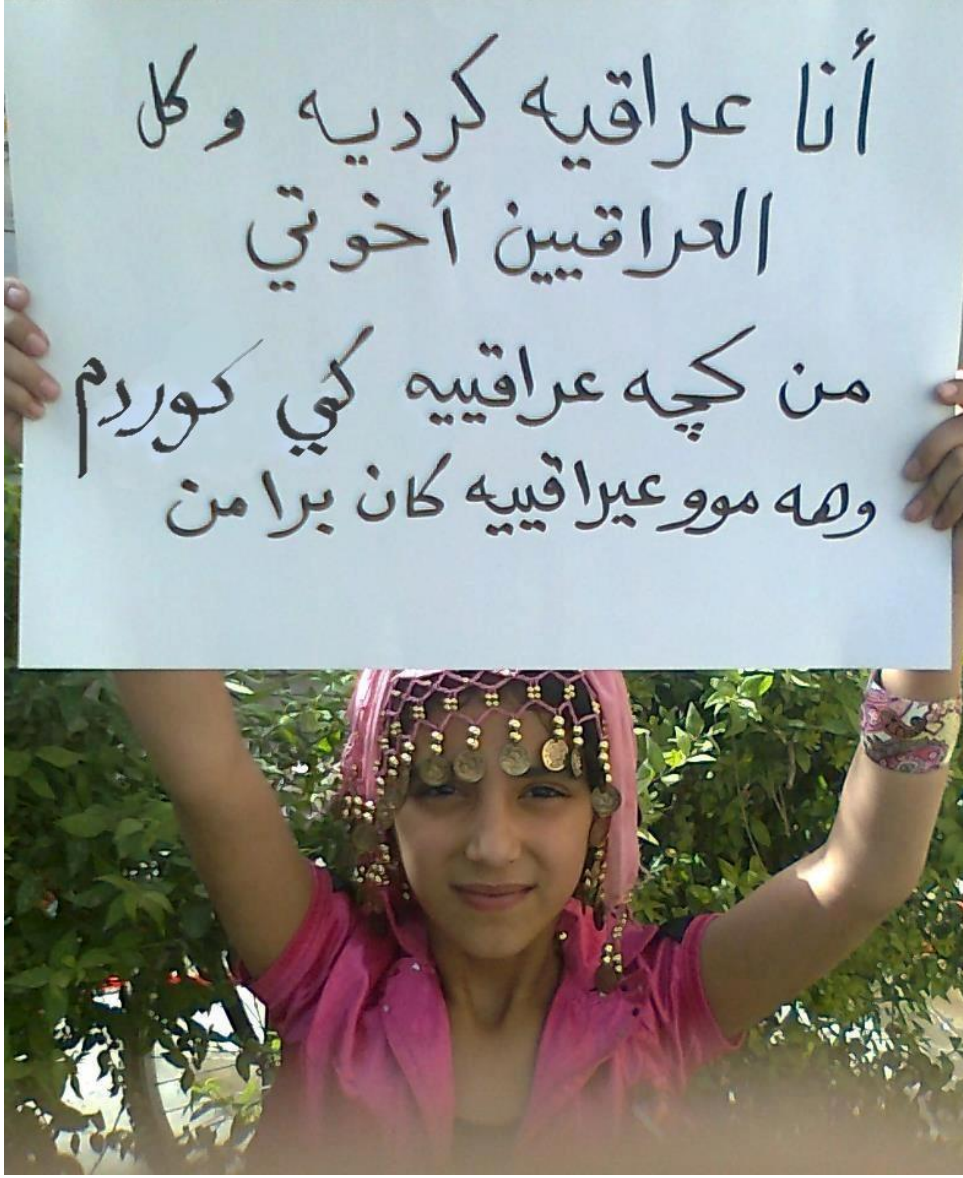 أنا عراقيه كرديه وكل
العراقيين أخوتي
من كچه عراقييه كي كوردم
وهه موو عيراقييه كان برا من